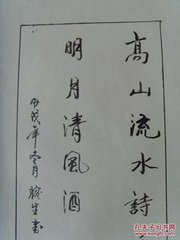 高山流水詩
明月清風酒
戌年冬月 生书